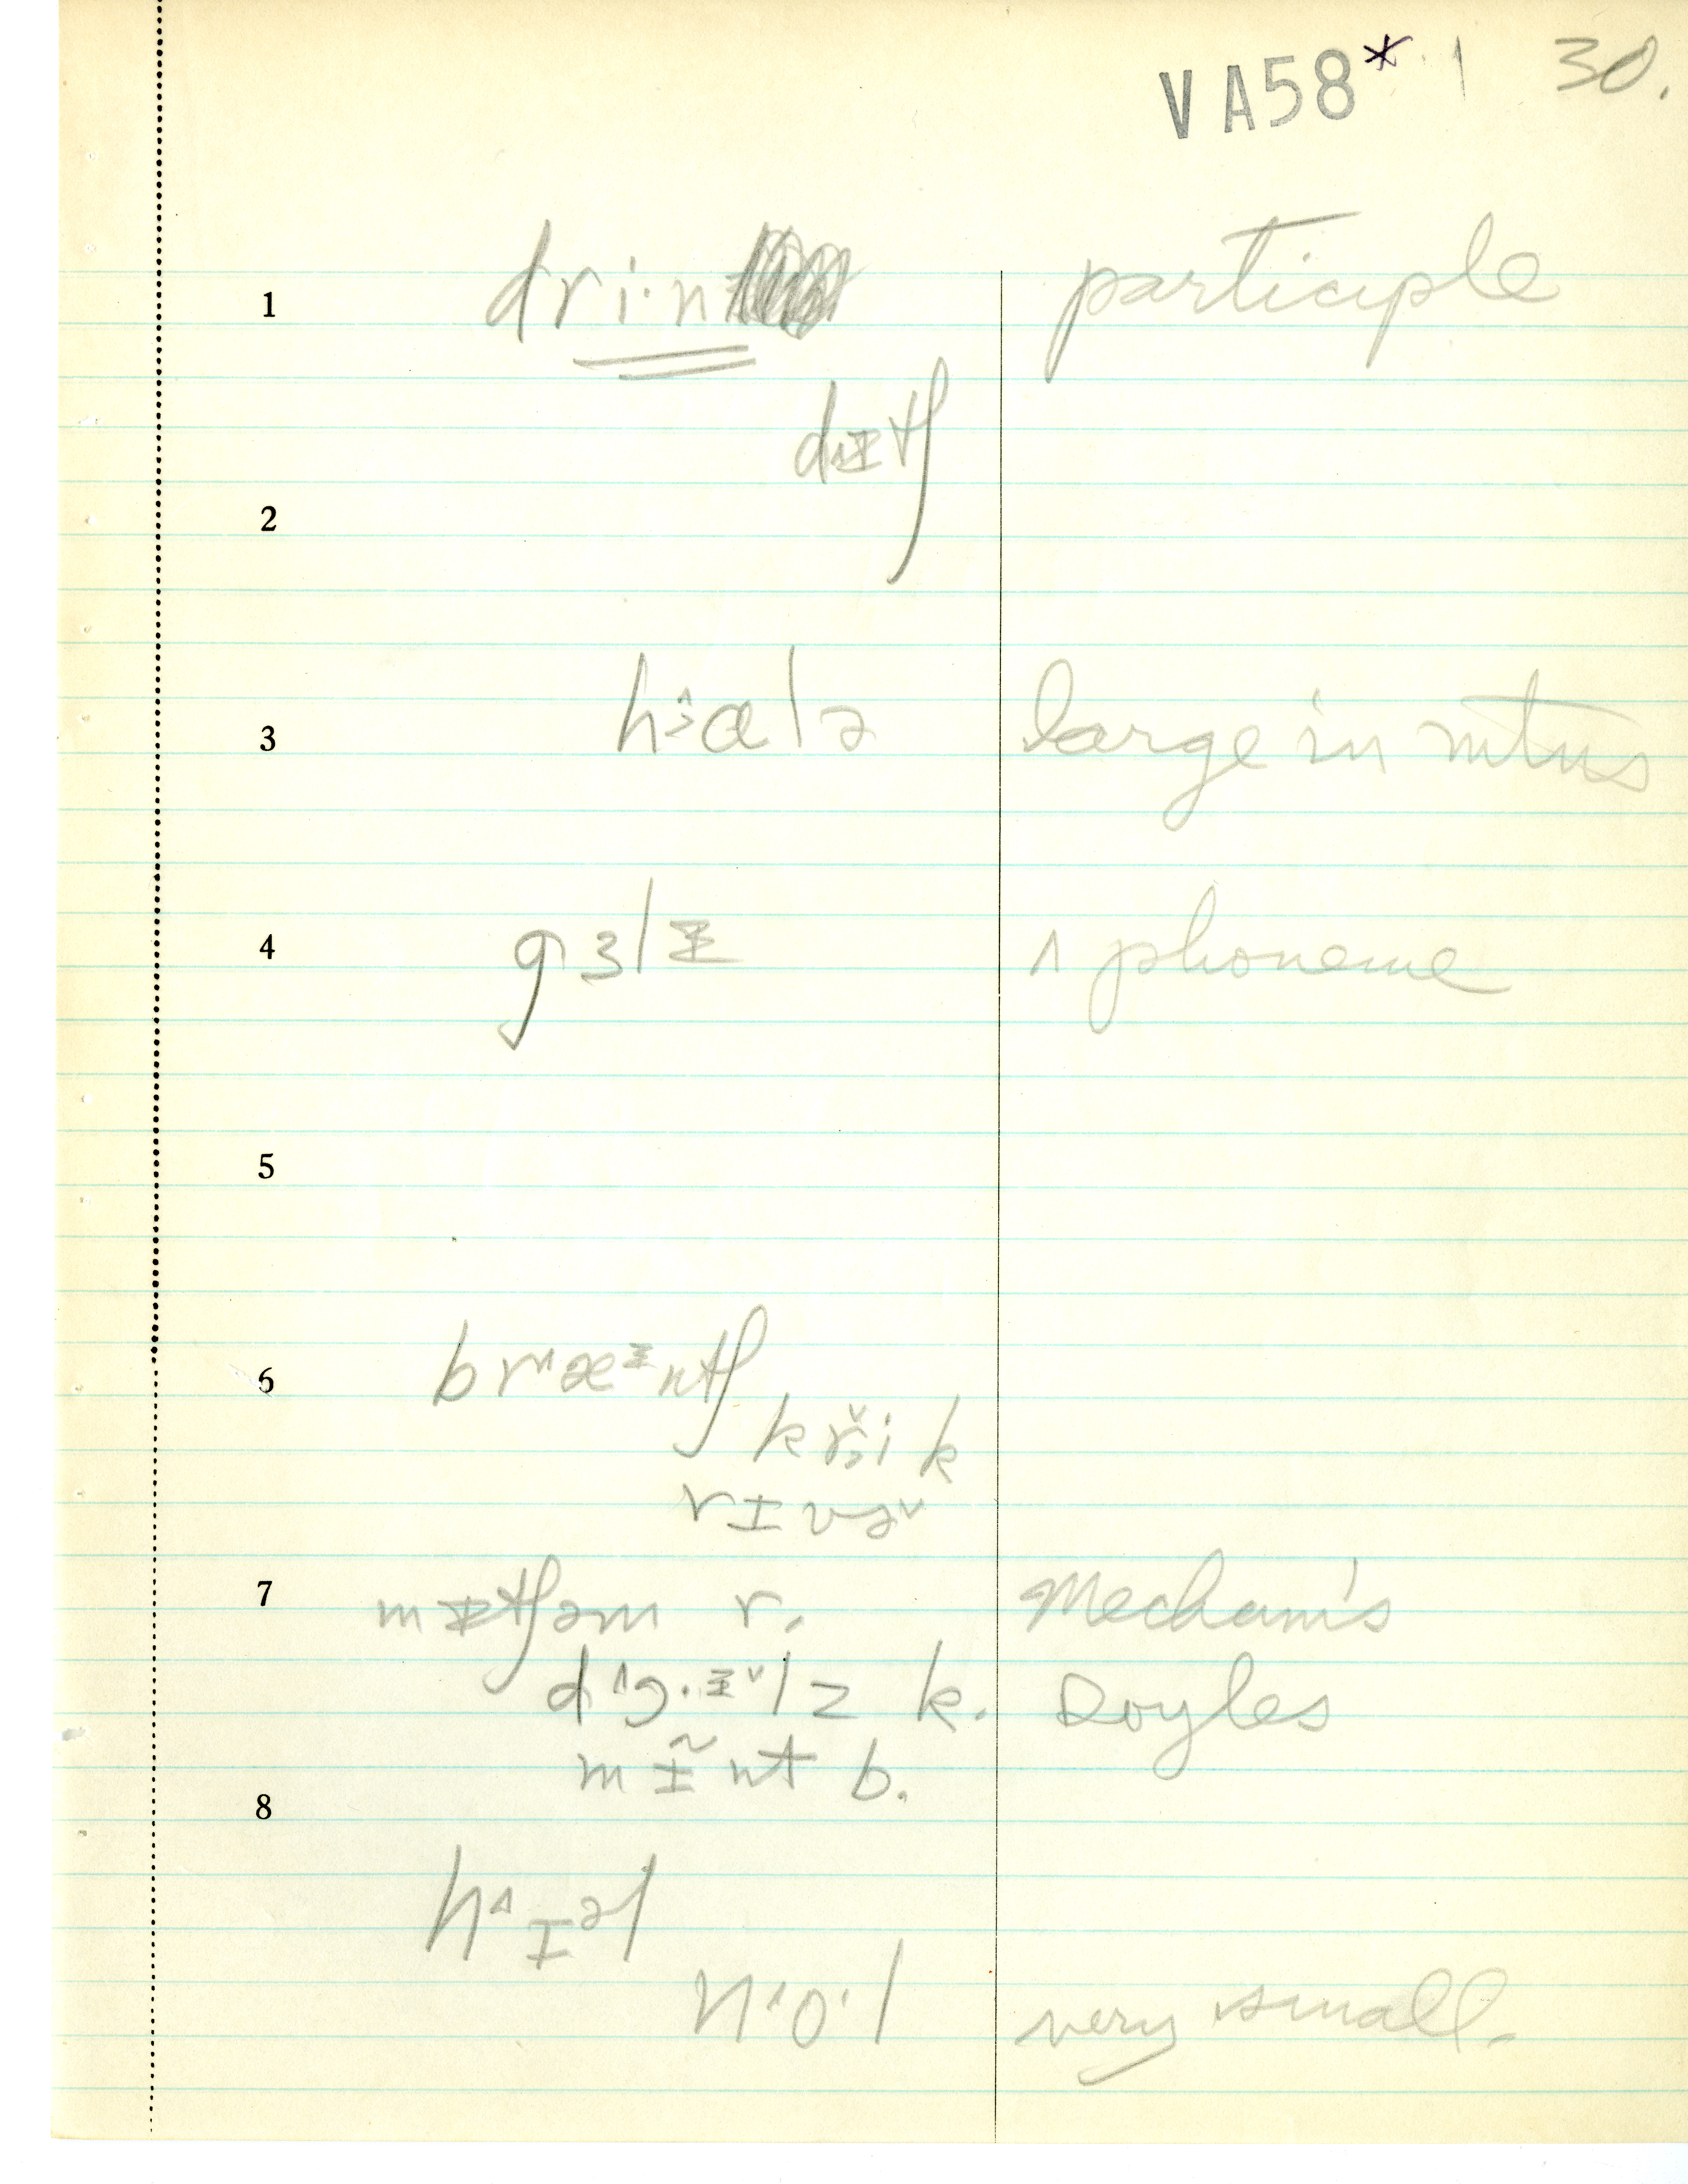 VA58* 1 30.
1 dri·n participle
dɪtʃ
2
3 large in
4 gɜlɪ ʌ phoneme
5
6 br æɪntʃ
krik
rɪvə
7 mtʃəm r. Mecham's
dɔ·ɪlz k. Doyles
mɪ̃nt b.
8
hɪəl
n o·l very small.